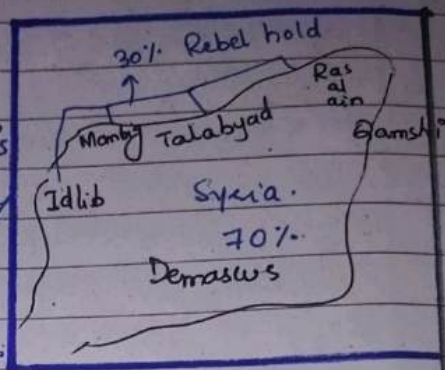 30% Rebel hold
Ras
al
ain
Manbij Talabyad
Qamshi
Idlib
Syria.
70%.
Demascus